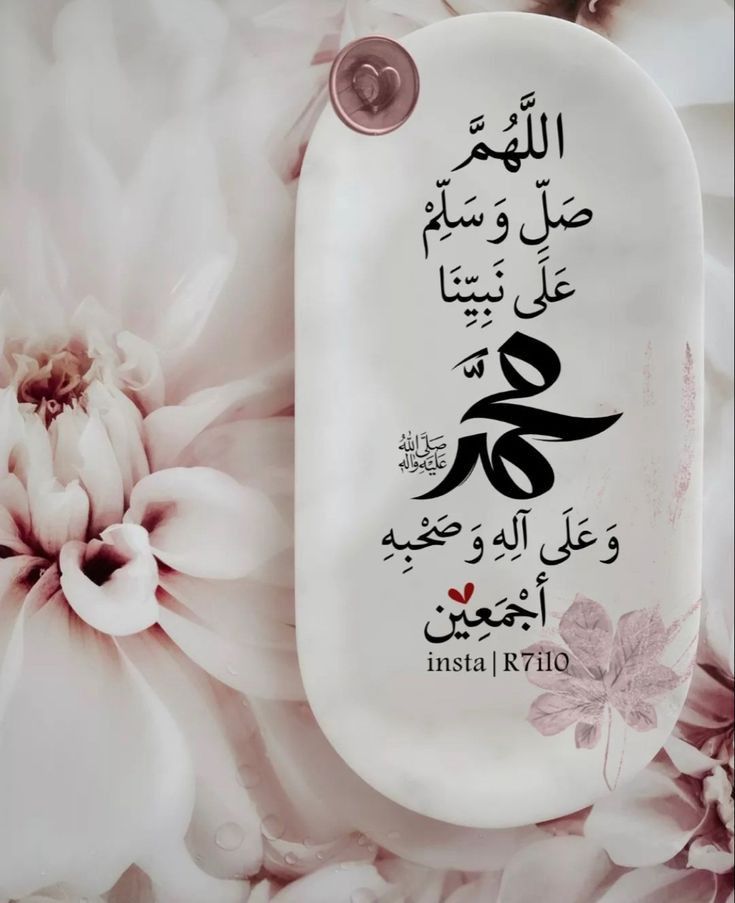 اللَّهُمَّ
صَلِّ وَ سَلِّمْ
عَلَى نَبِيِّنَا
مُحَمَّد
صَلَّى اللهُ
عَلَيْهِ وَآلِهِ
وَ عَلَى آلِهِ وَ صَحْبِهِ
أَجْمَعِين
insta|R7il0